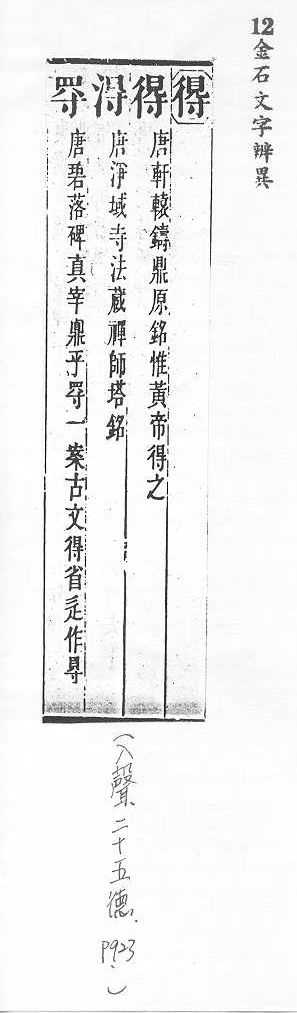 12金石文字辨異
得
得 唐軒轅鑄鼎原銘惟黃帝得之
淂 唐淨域寺法藏禪師塔銘
唐碧落碑真宰鼎乎 一案古文得省辵作㝵
(入聲二十五德.P923.)